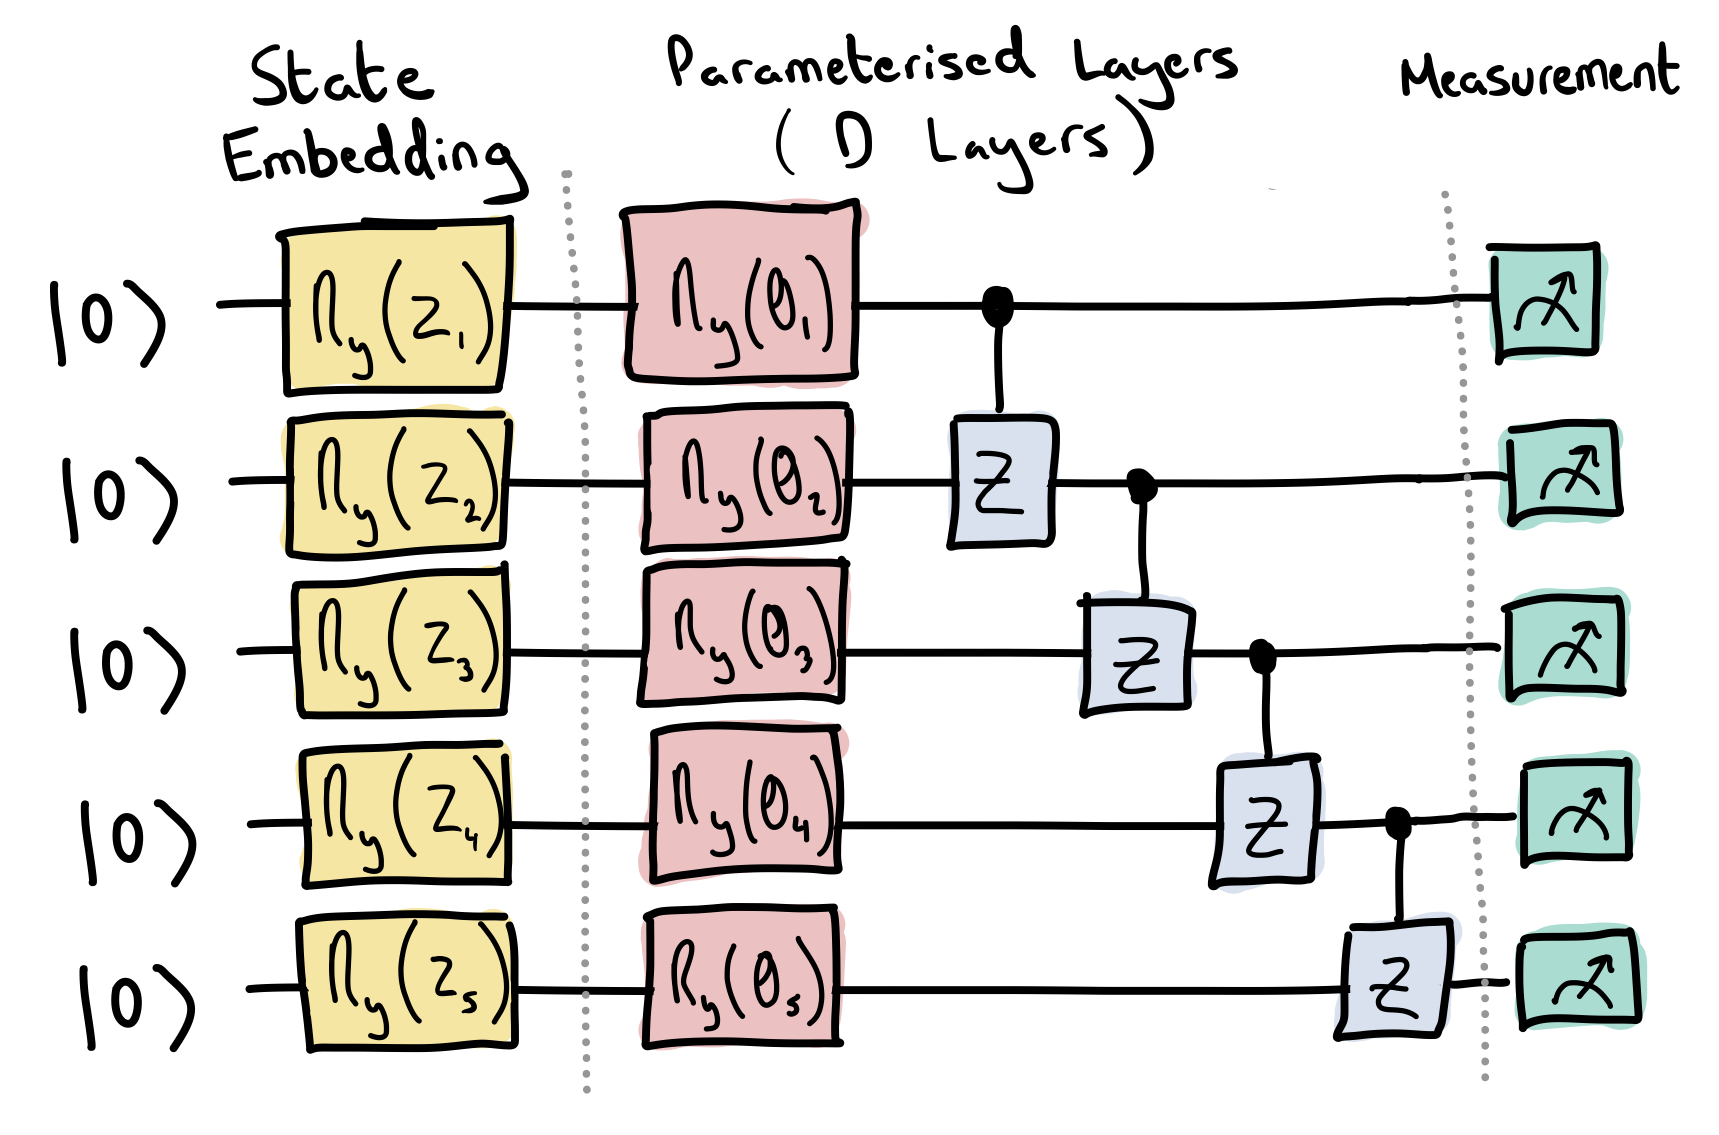 State Embedding
Parameterised Layers
(D Layers)
Measurement
|0⟩ R_y(z_1) R_y(θ_1)
|0⟩ R_y(z_2) R_y(θ_2) Z
|0⟩ R_y(z_3) R_y(θ_3) Z
|0⟩ R_y(z_4) R_y(θ_4) Z
|0⟩ R_y(z_5) R_y(θ_5) Z